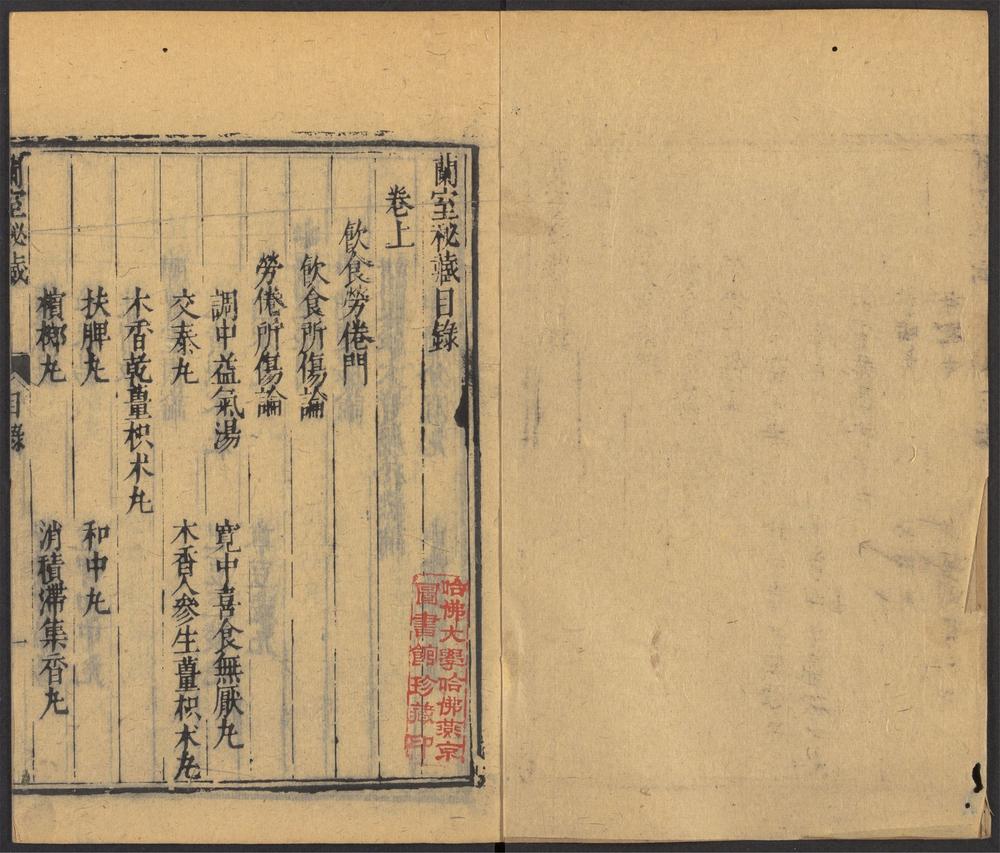 蘭室祕藏目錄
卷上
飲食勞倦門
飲食所傷論
勞倦所傷論
調中益氣湯 寬中喜食無厭丸
交泰丸 木香人參生薑枳朮丸
木香乾薑枳朮丸
扶脾丸 和中丸
檳榔丸 消積滯集香丸
蘭室祕藏 目錄 一
哈佛大學哈佛燕京
圖書館珍藏印